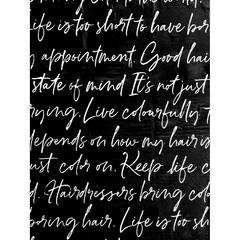 life is too short to have bor
y appointment. Good hai
state of mind It's not just
rying. Live colourfully
depends on how my hair is
ust color on. Keep life c
d. Hairdressers bring col
boring hair. Life is too sh